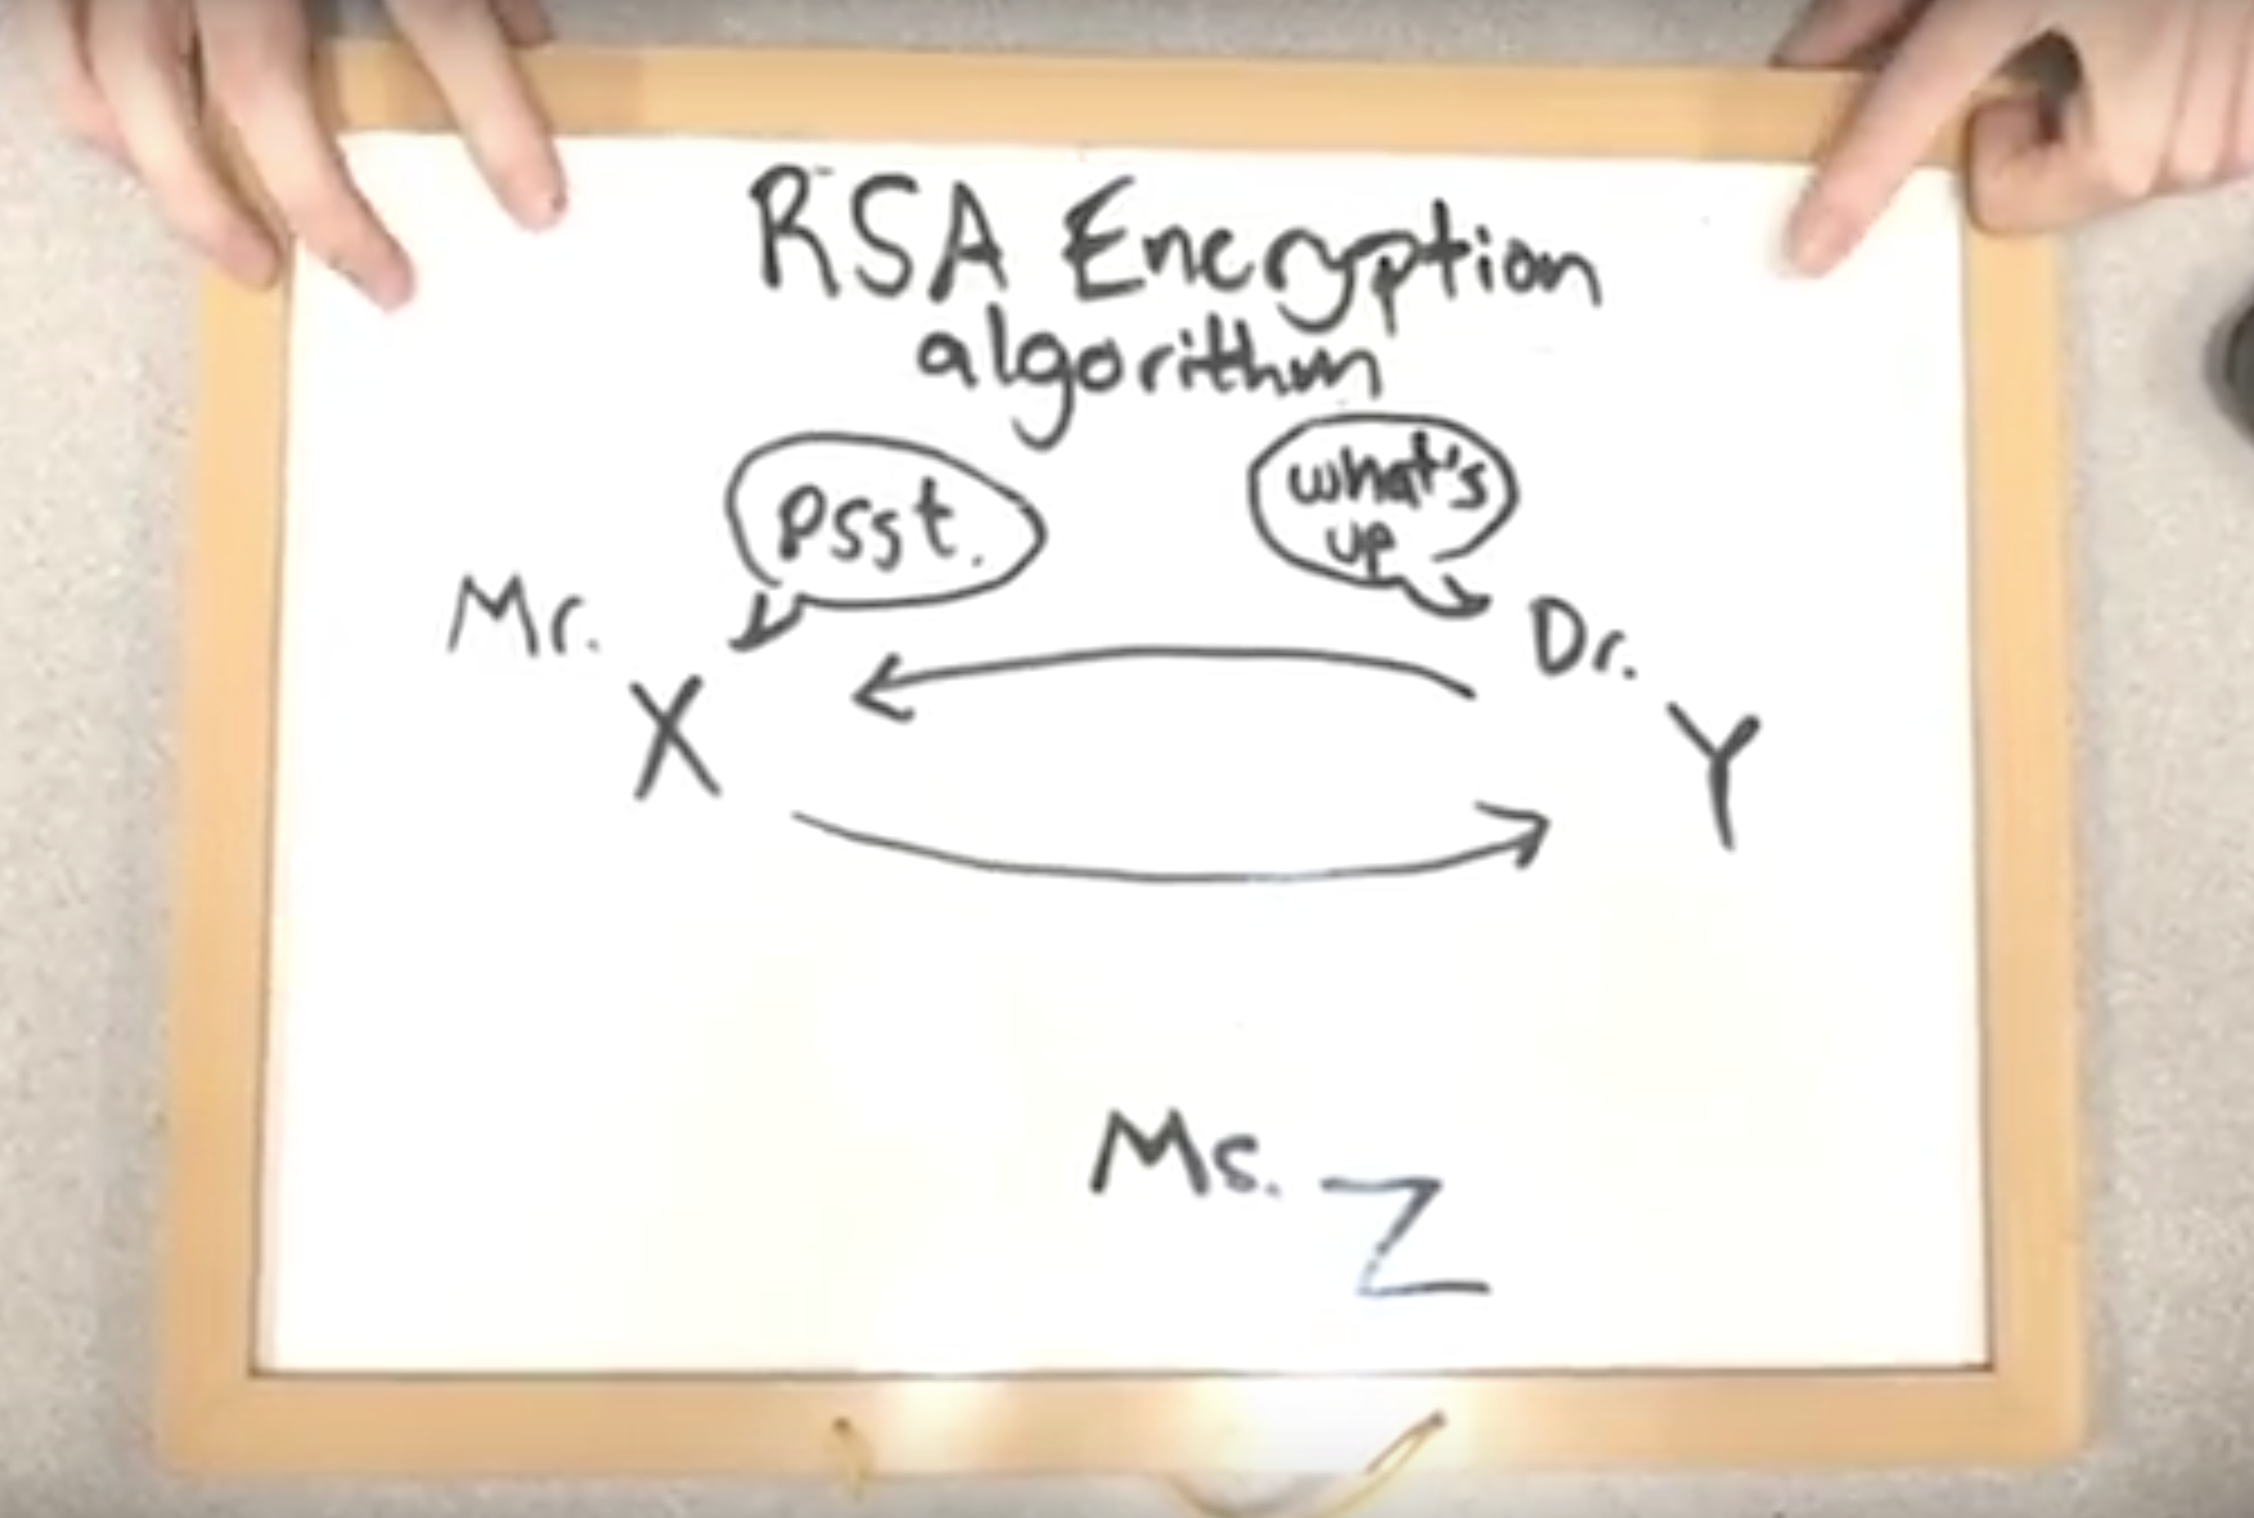 RSA Encryption
algorithm
psst.
what's
up
Mr.
X
Dr.
Y
Ms. Z